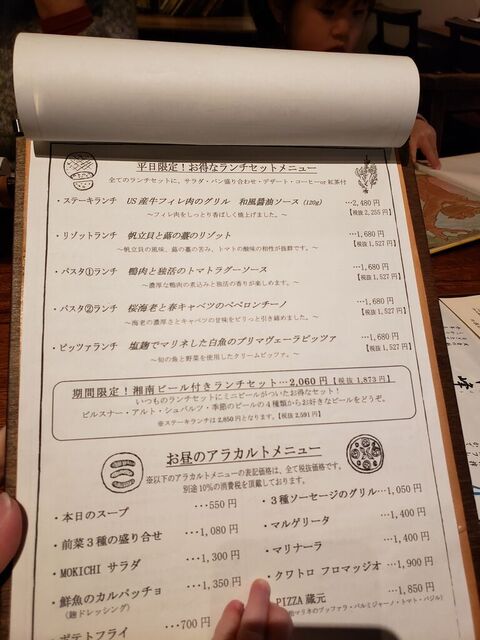 平日限定！お得なランチセットメニュー
全てのランチセットに、サラダ・パン盛り合わせ・デザート・コーヒーor紅茶付
・ステーキランチ　US産牛フィレ肉のグリル　和風醤油ソース（120g）　…2,480円
～フィレ肉をしっとり香ばしく焼上げました。～　【税抜 2,255円】
・リゾットランチ　帆立貝と蕗の薹のリゾット　…1,680円
～帆立貝の風味、蕗の薹の苦み、トマトの酸味の相性が抜群です。～　【税抜 1,527円】
・パスタ①ランチ　鴨肉と独活のトマトラグーソース　…1,680円
～濃厚な鴨肉の煮込みと独活の香りが楽しめます。～　【税抜 1,527円】
・パスタ②ランチ　桜海老と春キャベツのペペロンチーノ　…1,680円
～海老の濃厚さとキャベツの甘味をピリっと引き締めました。～　【税抜 1,527円】
・ピッツァランチ　塩麹でマリネした白魚のプリマヴェーラピッツァ　…1,680円
～旬の魚と野菜を使用したクリームピッツァ。～　【税抜 1,527円】
期間限定！湘南ビール付きランチセット…2,060円【税抜 1,873円】
いつものランチセットにミニビールがついたお得なセット！
ピルスナー・アルト・シュバルツ・季節のビールの4種類からお好きなビールをどうぞ。
※ステーキランチは2,850円となります。【税抜 2,591円】
お昼のアラカルトメニュー
※以下のアラカルトメニューの表記価格は、全て税抜価格です。
別途10％の消費税を頂戴しております。
・本日のスープ　…550円
・前菜３種の盛り合せ　…1,080円
・MOKICHI サラダ　…1,300円
・鮮魚のカルパッチョ　…1,350円
（麹ドレッシング）
ポテトフライ　…700円
・３種ソーセージのグリル…1,050円
・マルゲリータ　…1,400円
・マリナーラ　…1,400円
・クワトロ フロマッジオ…1,900円
PIZZA 蔵元　…1,850円
マリネのブッファラ・パルミジャーノ・トマト・バジル）